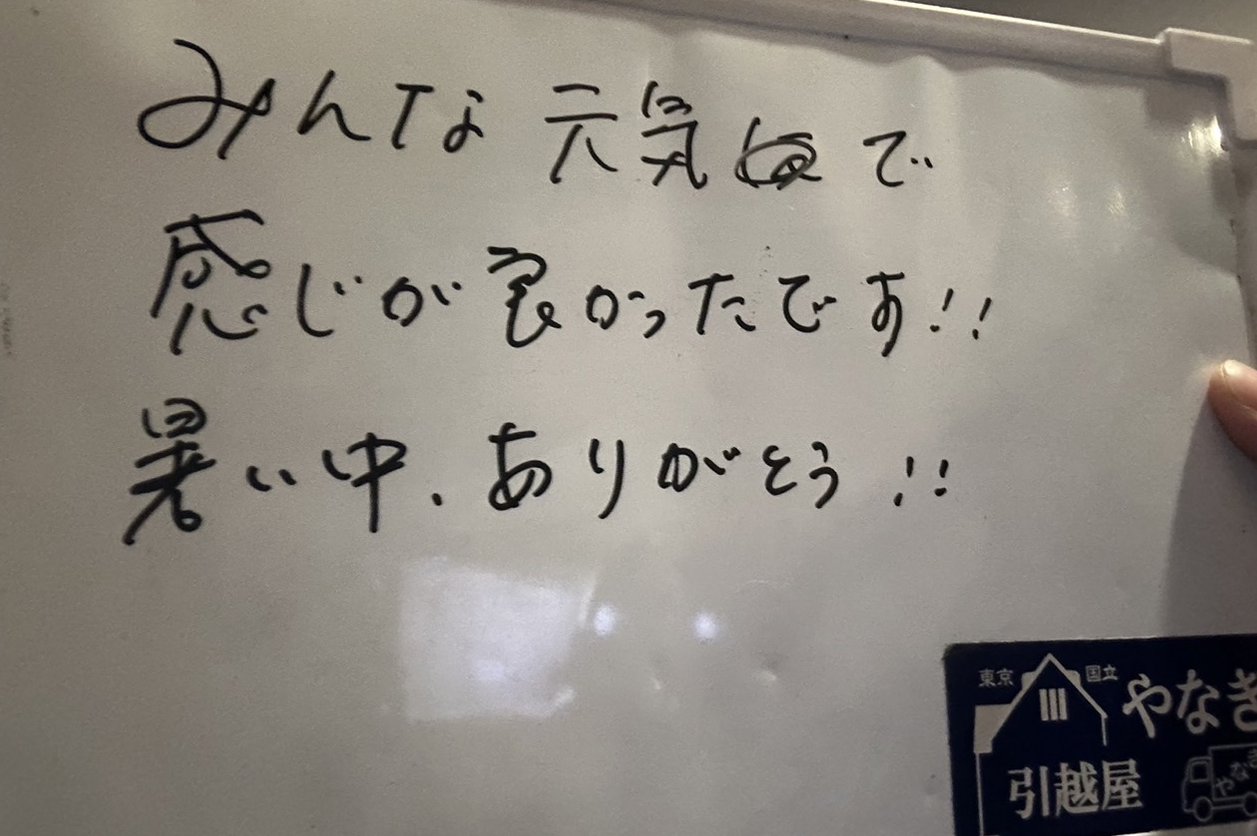 みんな元気で
感じが良かったです!!
暑い中、ありがとう!!
東京 国立
やなぎ
引越屋
やなぎ